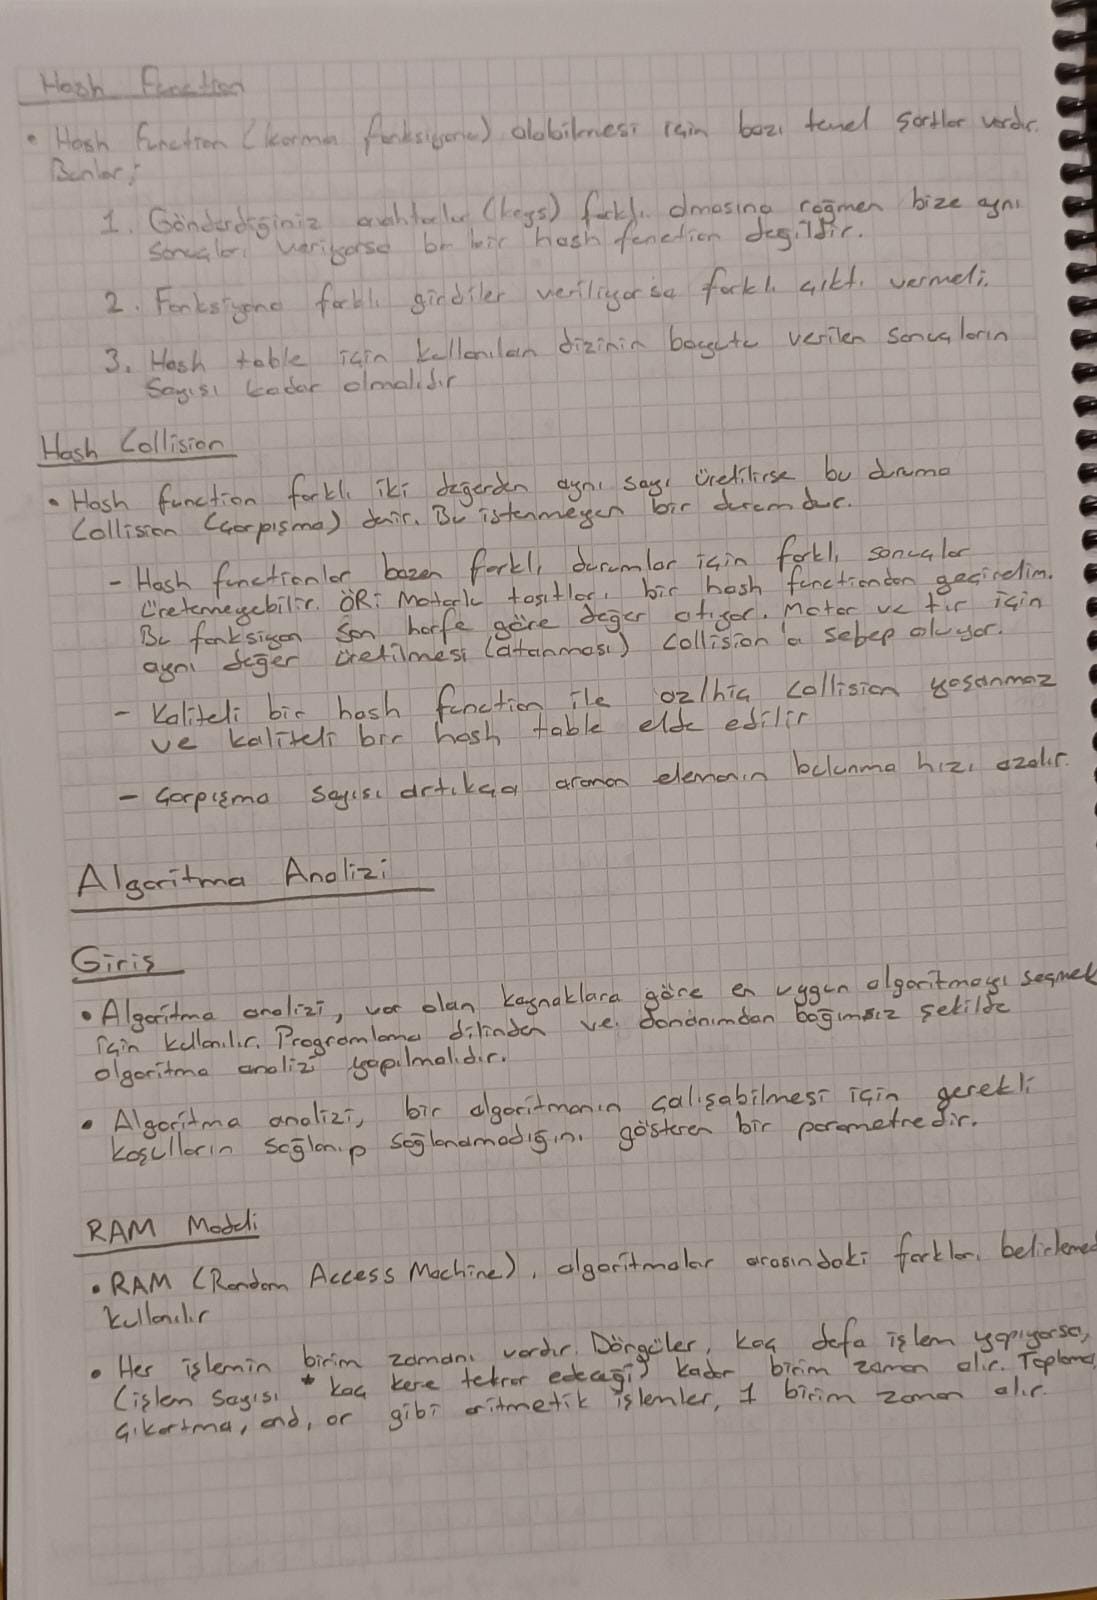 Hash Function
• Hash Function (karma fonksiyonu) olabilmesi için bazı temel şartlar vardır.
Bunlar;
1. Gönderdiğiniz anahtarlar (keys) farklı olmasına rağmen bize aynı
sonuçları veriyorsa bu bir hash function değildir.
2. Fonksiyona farklı girdiler veriliyorsa farklı çıktı vermeli.
3. Hash table için kullanılan dizinin boyutu verilen sonuçların
sayısı kadar olmalıdır
Hash Collision
• Hash function farklı iki değerden aynı sayı üretilirse bu duruma
Collision (çarpışma) denir. Bu istenmeyen bir durumdur.
- Hash functionlar bazen farklı durumlar için farklı sonuçlar
üretemeyebilir. ÖR: Motorlu taşıtları bir hash functiondan geçirelim.
Bu fonksiyon son harfe göre değer atıyor. Motor ve tır için
aynı değer üretilmesi (atanması) collision'a sebep oluyor.
- Kaliteli bir hash function ile az/hiç collision yaşanmaz
ve kaliteli bir hash table elde edilir
- Çarpışma sayısı arttıkça aranan elemanın bulunma hızı azalır.
Algoritma Analizi
Giriş
• Algoritma analizi, var olan kaynaklara göre en uygun algoritmayı seçmek
için kullanılır. Programlama dilinden ve donanımdan bağımsız şekilde
algoritma analizi yapılmalıdır.
• Algoritma analizi, bir algoritmanın çalışabilmesi için gerekli
koşulların sağlanıp sağlanamadığını gösteren bir parametredir.
RAM Modeli
• RAM (Random Access Machine), algoritmalar arasındaki farkları belirlemed
kullanılır
• Her işlemin birim zamanı vardır. Döngüler, kaç defa işlem yapıyorsa,
(işlem sayısı * kaç kere tekrar edeceği) kadar birim zaman alır. Toplama,
çıkartma, and, or gibi aritmetik işlemler, 1 birim zaman alır.